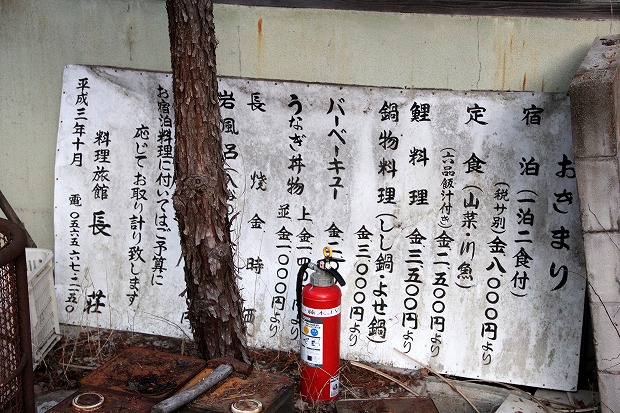 おきまり
宿泊(一泊二食付)
(税サ別)金八〇〇〇円より
定食(山菜・川魚)
(六品飯汁付き)金二五〇〇円より
鯉料理 金三五〇〇円より
鍋物料理(しし鍋・よせ鍋)
金三〇〇〇円より
バーベーキュー 金二
うなぎ丼物 上 金
並 金一〇〇〇円より
長焼金時価
岩風呂
お宿泊料理に付いてはご予算に
応じてお取り計り致します
平成三年十月
料理旅館 長 荘
電〇五六五六七・二一五〇